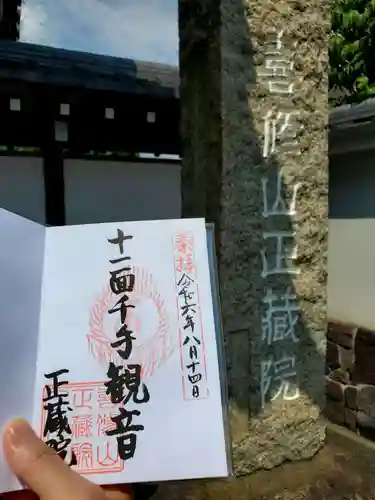 奉拝
令和六年八月十四日
十一面千手観音
正蔵院
喜修山
正蔵院
喜修山正蔵院